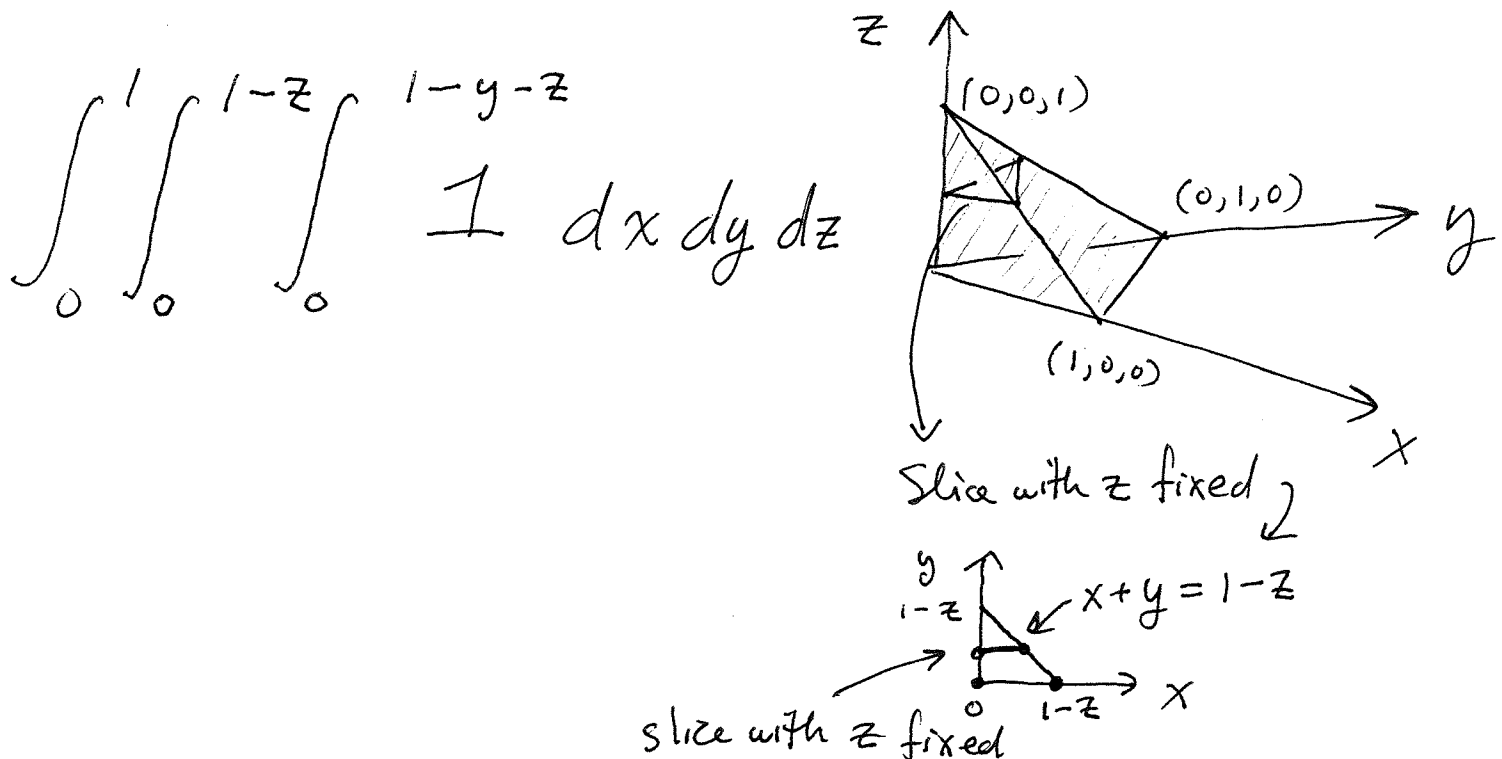 ∫₀¹ ∫₀^{1-z} ∫₀^{1-y-z} 1 dx dy dz
z
(0,0,1)
(0,1,0)
y
(1,0,0)
x
Slice with z fixed
y
1-z
x+y = 1-z
0
1-z
x
slice with z fixed